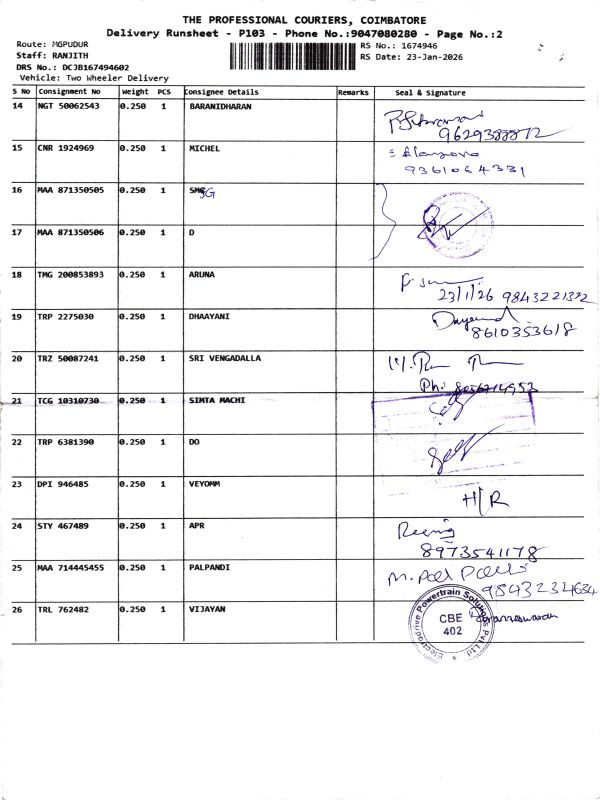 THE PROFESSIONAL COURIERS, COIMBATORE
Delivery Runsheet - P103 - Phone No.:9047080280 - Page No.:2
Route: MGPUDUR
Staff: RANJITH
DRS No.: DCJB167494602
Vehicle: Two Wheeler Delivery
RS No.: 1674946
RS Date: 23-Jan-2026
S No Consignment No Weight PCS Consignee Details Remarks Seal & Signature
14 NGT 50062543 0.250 1 BARANIDHARAN
9629388872
15 CNR 1924969 0.250 1 MICHEL
9361064331
16 MAA 871350505 0.250 1 SMG
17 MAA 871350506 0.250 1 D
18 TMG 200853893 0.250 1 ARUNA
23/1/26 9843221372
19 TRP 2275030 0.250 1 DHAAYANI
8610353618
20 TRZ 50087241 0.250 1 SRI VENGADALLA
Ph:
21 TCG 10310730 0.250 1 SIMTA MACHI
22 TRP 6381390 0.250 1 DO
23 DPI 946485 0.250 1 VEYOMM H/R
24 STY 467489 0.250 1 APR
8973541178
25 MAA 714445455 0.250 1 PALPANDI M. Pal Pandi
9843234634
26 TRL 762482 0.250 1 VIJAYAN
Electrodrive Powertrain Solutions Pvt Ltd
CBE
402